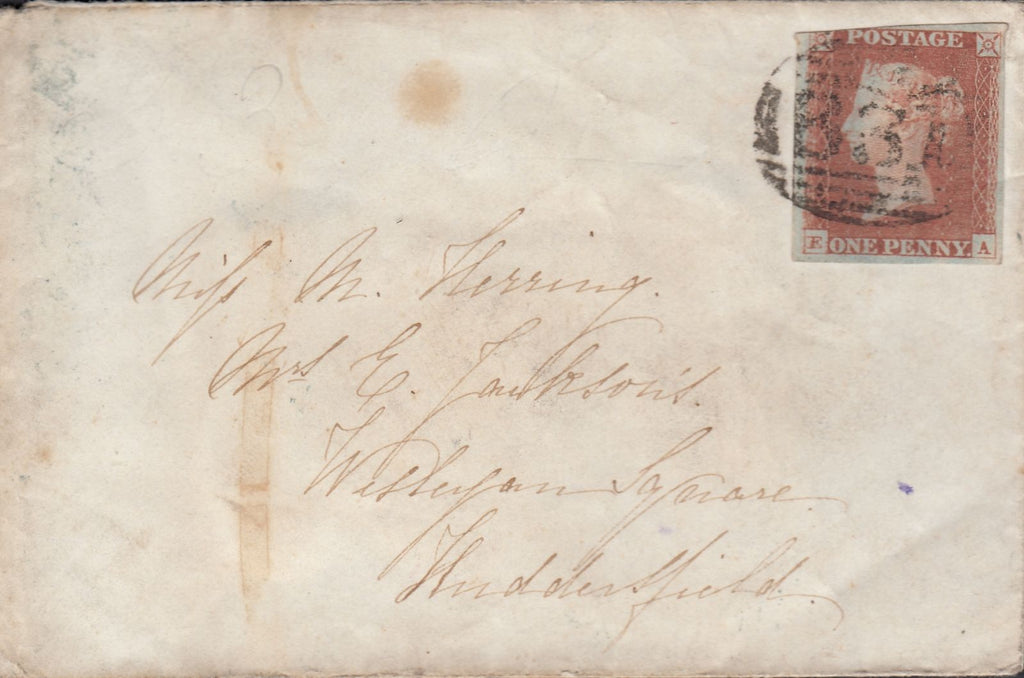 POSTAGE
E ONE PENNY. A
Miss M. Herring.
Mrs E. Jackson's.
Wesleyan Square
Huddersfield.